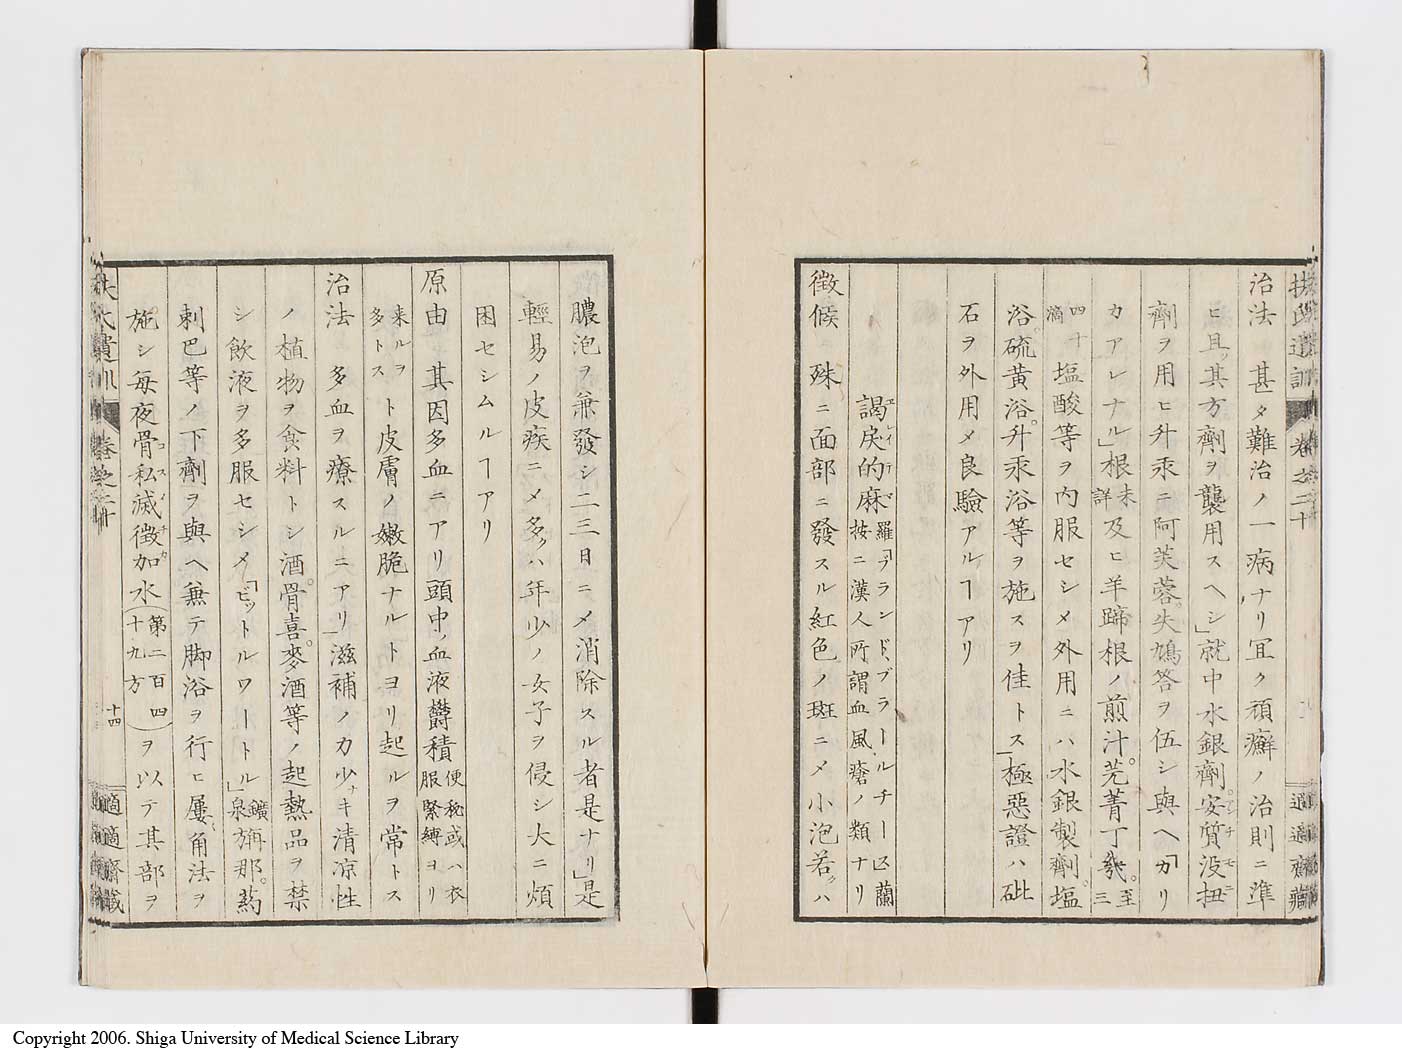 扶氏遺訓 卷之二十 適適齋藏
治法 甚タ難治ノ一病ナリ冝ク頑癬ノ治則ニ準
ヒ且ッ其方劑ヲ襲用スヘシ」就中水銀劑安質没扭
劑ヲ用ヒ升汞ニ阿芙蓉失鳩答ヲ伍シ與ヘ「カリ
カアレナル」根未詳及ヒ羊蹄根ノ煎汁芫菁丁幾至三
四十滴塩酸等ヲ内服セシメ外用ニハ水銀製劑塩
浴硫黄浴升汞浴等ヲ施スヲ佳トス」極惡證ハ砒
石ヲ外用メ良驗アルヿアリ
謁戻的麻羅「ブランド、ブラールチース」蘭按ニ漢人所謂血風瘡ノ類ナリ
徴候 殊ニ面部ニ發スル紅色ノ斑ニメ小泡若クハ
膿泡ヲ兼發シ二三日ニメ消除スル者是ナリ」是
輕易ノ皮疾ニメ多クハ年少ノ女子ヲ侵シ大ニ煩
困セシムルヿアリ
原由 其因多血ニアリ頭中ノ血液欝積便秘或ハ衣服緊縛ヨリ
来ルヲ多トスト皮膚ノ嫩脆ナルトヨリ起ルヲ常トス
治法 多血ヲ療スルニアリ」滋補ノカ少ナキ清凉性
ノ植物ヲ食料トシ酒骨喜麥酒等ノ起熱品ヲ禁
シ飲液ヲ多服セシメ「ビットルワートル」鑛泉旃那葯
刺巴等ノ下劑ヲ與ヘ兼テ脚浴ヲ行ヒ屢角法ヲ
施シ毎夜骨私滅徴加水(第二百四十九方)ヲ以テ其部ヲ
扶氏遺訓 卷之二十 十四 適適齋藏
Copyright 2006. Shiga University of Medical Science Library